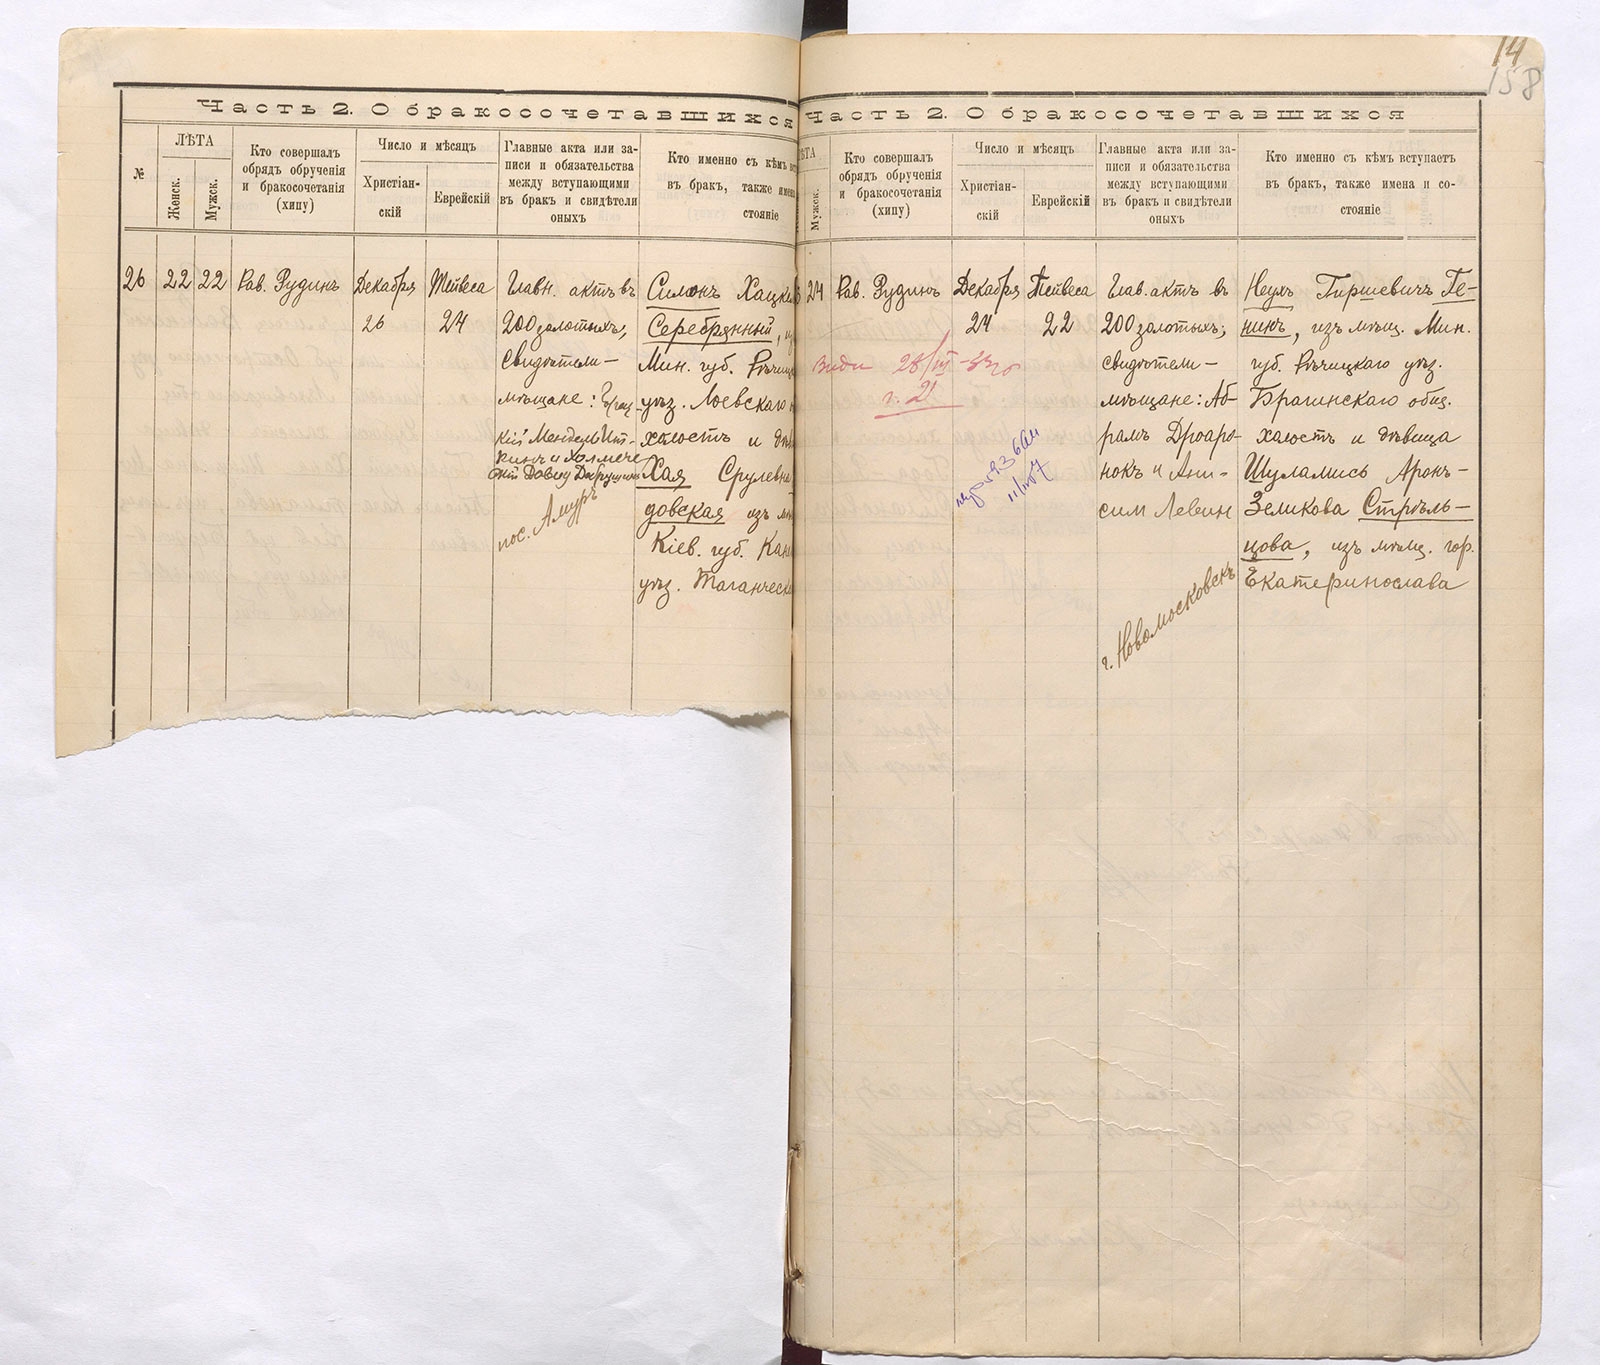 14
158
Часть 2. О бракосочетавшихся
№
ЛѢТА
Женск.
Мужск.
Кто совершалъ
обрядъ обрученія
и бракосочетанія
(хипу)
Число и мѣсяцъ
Христіан-
скій
Еврейскій
Главные акта или за-
писи и обязательства
между вступающими
въ бракъ и свидѣтели
оныхъ
Кто именно съ кѣмъ
въ бракъ, также имена
стояніе
26
22
22
Рав. Рудинъ
Декабря
26
Тейвеса
24
Главн. актъ въ
200 золотыхъ;
свидѣтели —
мѣщане:
кій Мендель
и Холмече
Довид
пос. Амуръ
Симонъ
Серебрянный,
Мин. губ.
уѣз. Лоевскаго
холостъ и
Хая Срулевна
довская изъ
Кіев. губ.
уѣз.
Часть 2. О бракосочетавшихся
Мужск.
Кто совершалъ
обрядъ обрученія
и бракосочетанія
(хипу)
Число и мѣсяцъ
Христіан-
скій
Еврейскій
Главные акта или за-
писи и обязательства
между вступающими
въ бракъ и свидѣтели
оныхъ
Кто именно съ кѣмъ вступаетъ
въ бракъ, также имена и со-
стояніе
24
Рав. Рудинъ
Декабря
24
Тейвеса
22
Глав. актъ въ
200 золотыхъ;
свидѣтели —
мѣщане: Аб-
рамъ
нокъ и Ани-
сим Левин
г. Новомосковскъ
Неухъ Гиршевичъ Ге-
никъ, изъ мѣщ. Мин.
губ. Рѣчицкаго уѣз.
Брагинскаго общ.
холостъ и дѣвица
Шуламись Аронъ-
Зеликова Стрѣль-
цова, изъ мѣщ. гор.
Екатеринослава